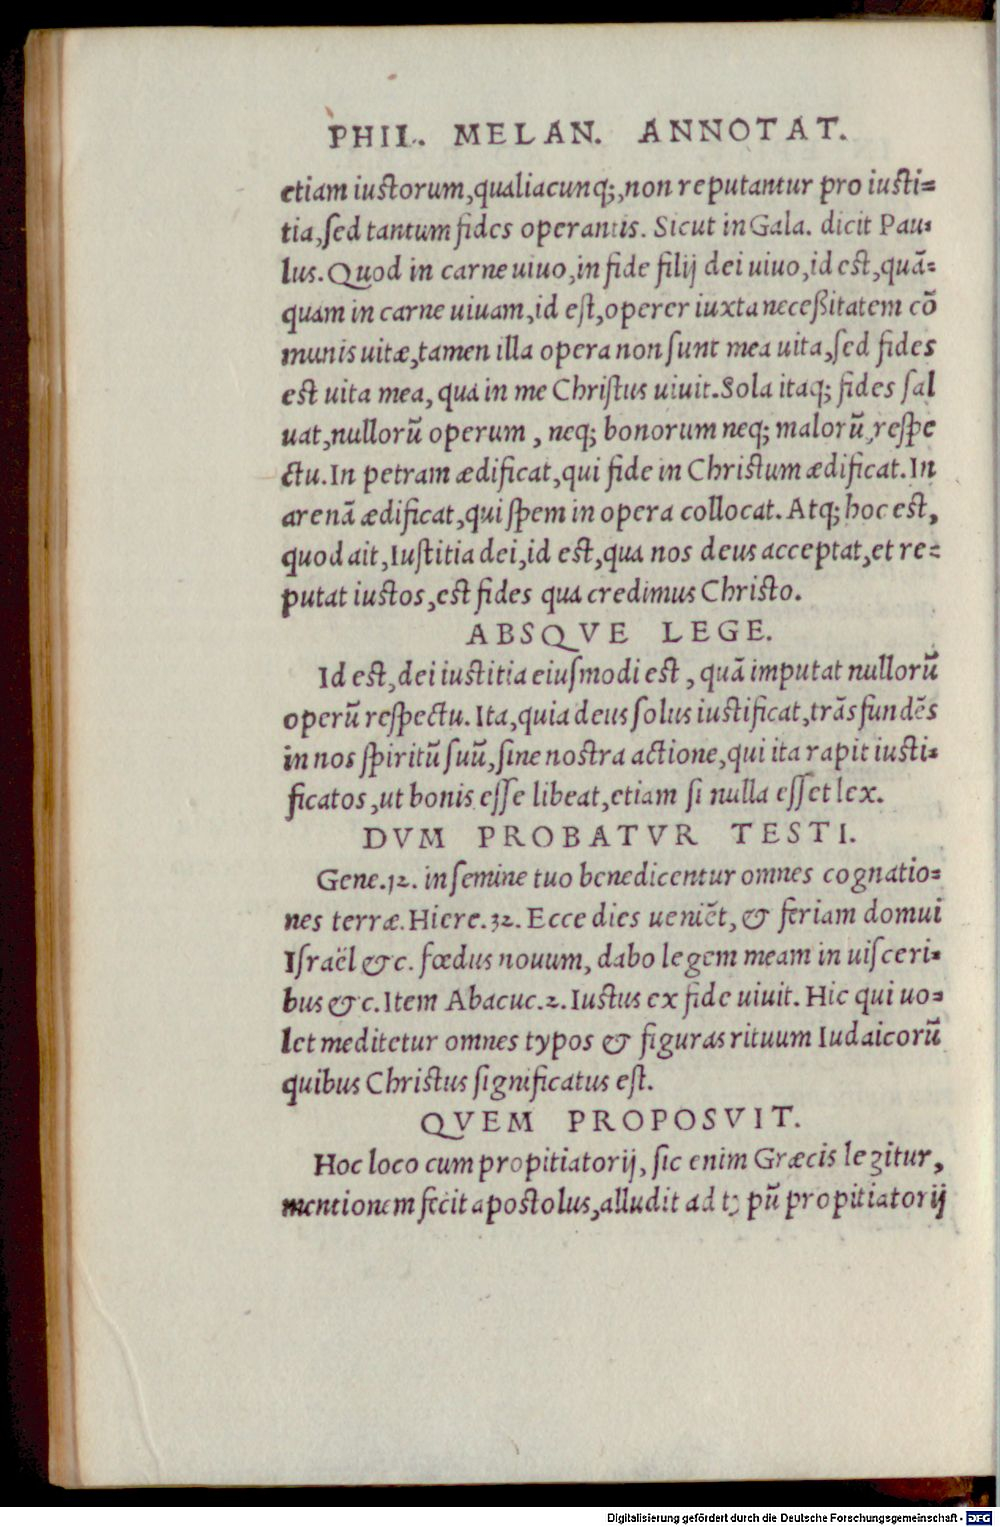 PHIL. MELAN. ANNOTAT.
etiam iustorum, qualiacunq;, non reputantur pro iusti=
tia, sed tantum fides operantis. Sicut in Gala. dicit Pau=
lus. Quod in carne uiuo, in fide filij dei uiuo, id est, quã=
quam in carne uiuam, id est, operer iuxta neceßitatem cõ
munis uitæ, tamen illa opera non sunt mea uita, sed fides
est uita mea, qua in me Christus uiuit. Sola itaq; fides sal
uat, nullorũ operum, neq; bonorum neq; malorũ, respe
ctu. In petram ædificat, qui fide in Christum ædificat. In
arenã ædificat, qui spem in opera collocat. Atq; hoc est,
quod ait, Iustitia dei, id est, qua nos deus acceptat, et re=
putat iustos, est fides qua credimus Christo.
ABSQVE LEGE.
Id est, dei iustitia eiusmodi est, quã imputat nullorũ
operũ respectu. Ita, quia deus solus iustificat, trãsfundẽs
in nos spiritũ suũ, sine nostra actione, qui ita rapit iusti=
ficatos, ut bonis esse libeat, etiam si nulla esset lex.
DVM PROBATVR TESTI.
Gene.12. in semine tuo benedicentur omnes cognatio=
nes terræ. Hiere.32. Ecce dies ueniẽt, & feriam domui
Israël &c. fœdus nouum, dabo legem meam in uisceri=
bus &c. Item Abacuc.2. Iustus ex fide uiuit. Hic qui uo=
let meditetur omnes typos & figuras rituum Iudaicorũ
quibus Christus significatus est.
QVEM PROPOSVIT.
Hoc loco cum propitiatorij, sic enim Græcis legitur,
mentionem fecit apostolus, alludit ad typũ propitiatorij
Digitalisierung gefördert durch die Deutsche Forschungsgemeinschaft - DFG